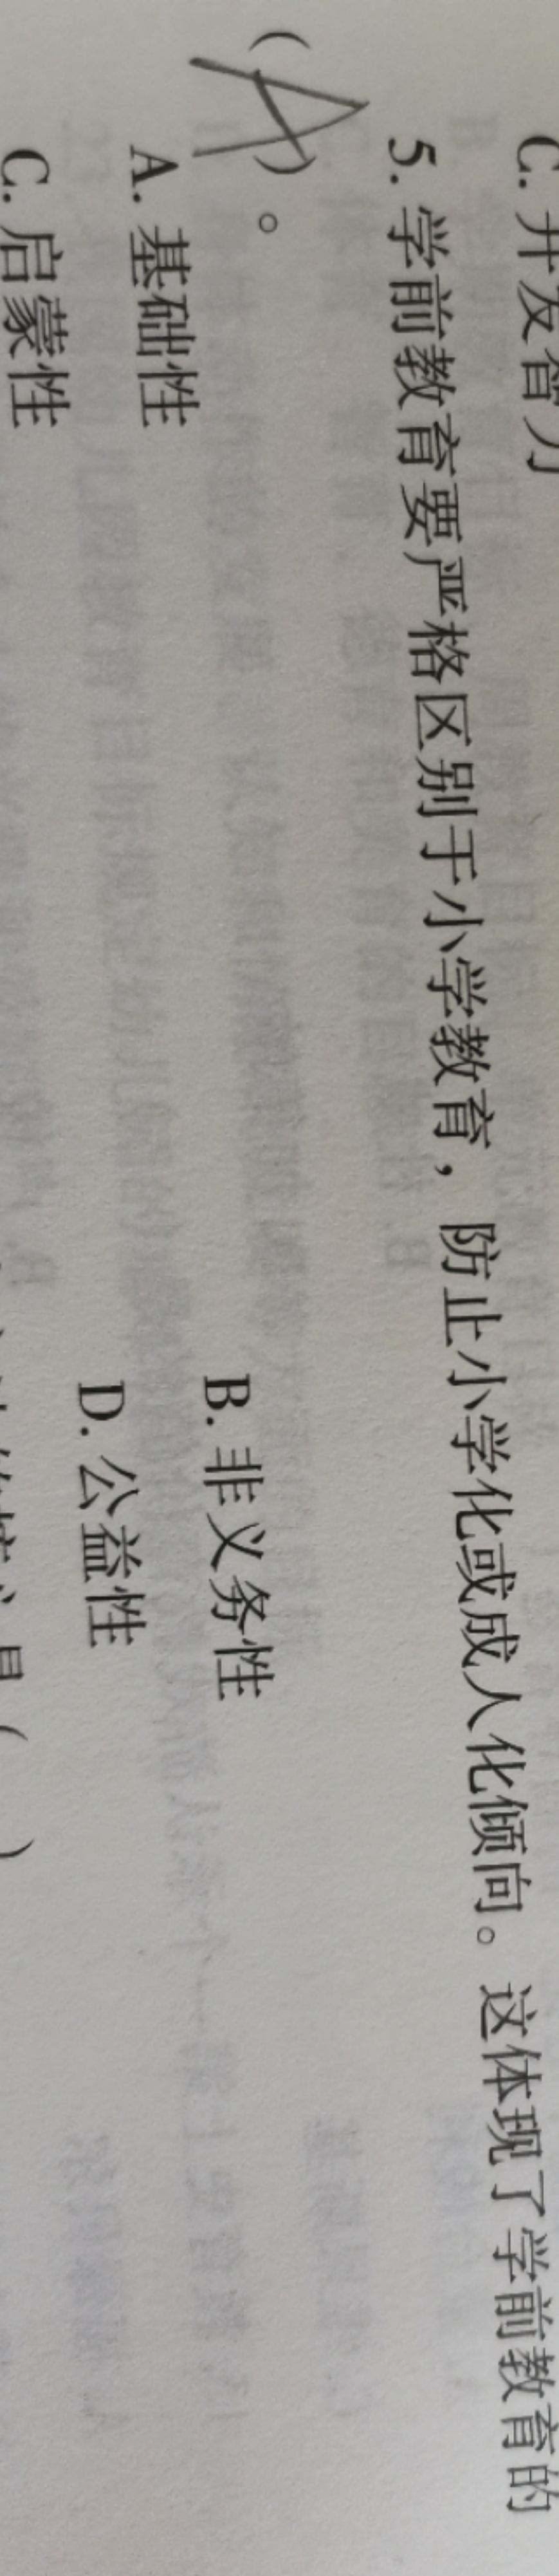 C. 开发智力
5. 学前教育要严格区别于小学教育，防止小学化或成人化倾向。这体现了学前教育的
(A)。
A. 基础性 B. 非义务性
C. 启蒙性 D. 公益性